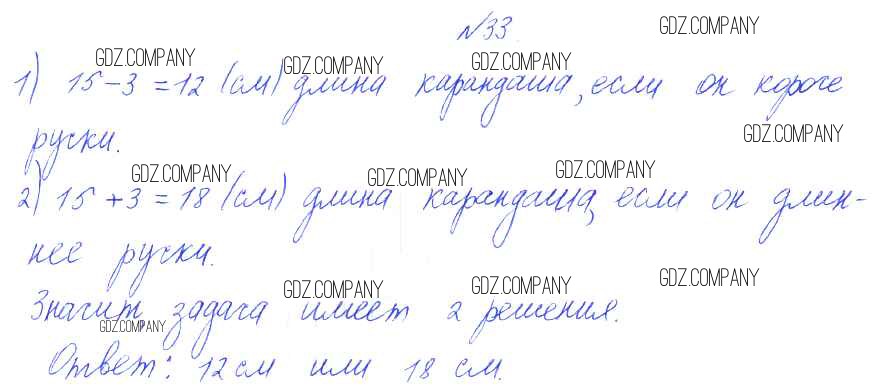 №33.
GDZ.COMPANY
GDZ.COMPANY GDZ.COMPANY GDZ.COMPANY
1) 15-3=12 (см) длина карандаша, если он короче
GDZ.COMPANY
ручки.
GDZ.COMPANY GDZ.COMPANY GDZ.COMPANY
2) 15+3=18 (см) длина карандаша, если он длин-
нее ручки.
GDZ.COMPANY GDZ.COMPANY GDZ.COMPANY
Значит задача имеет 2 решения.
GDZ.COMPANY
Ответ: 12 см или 18 см.